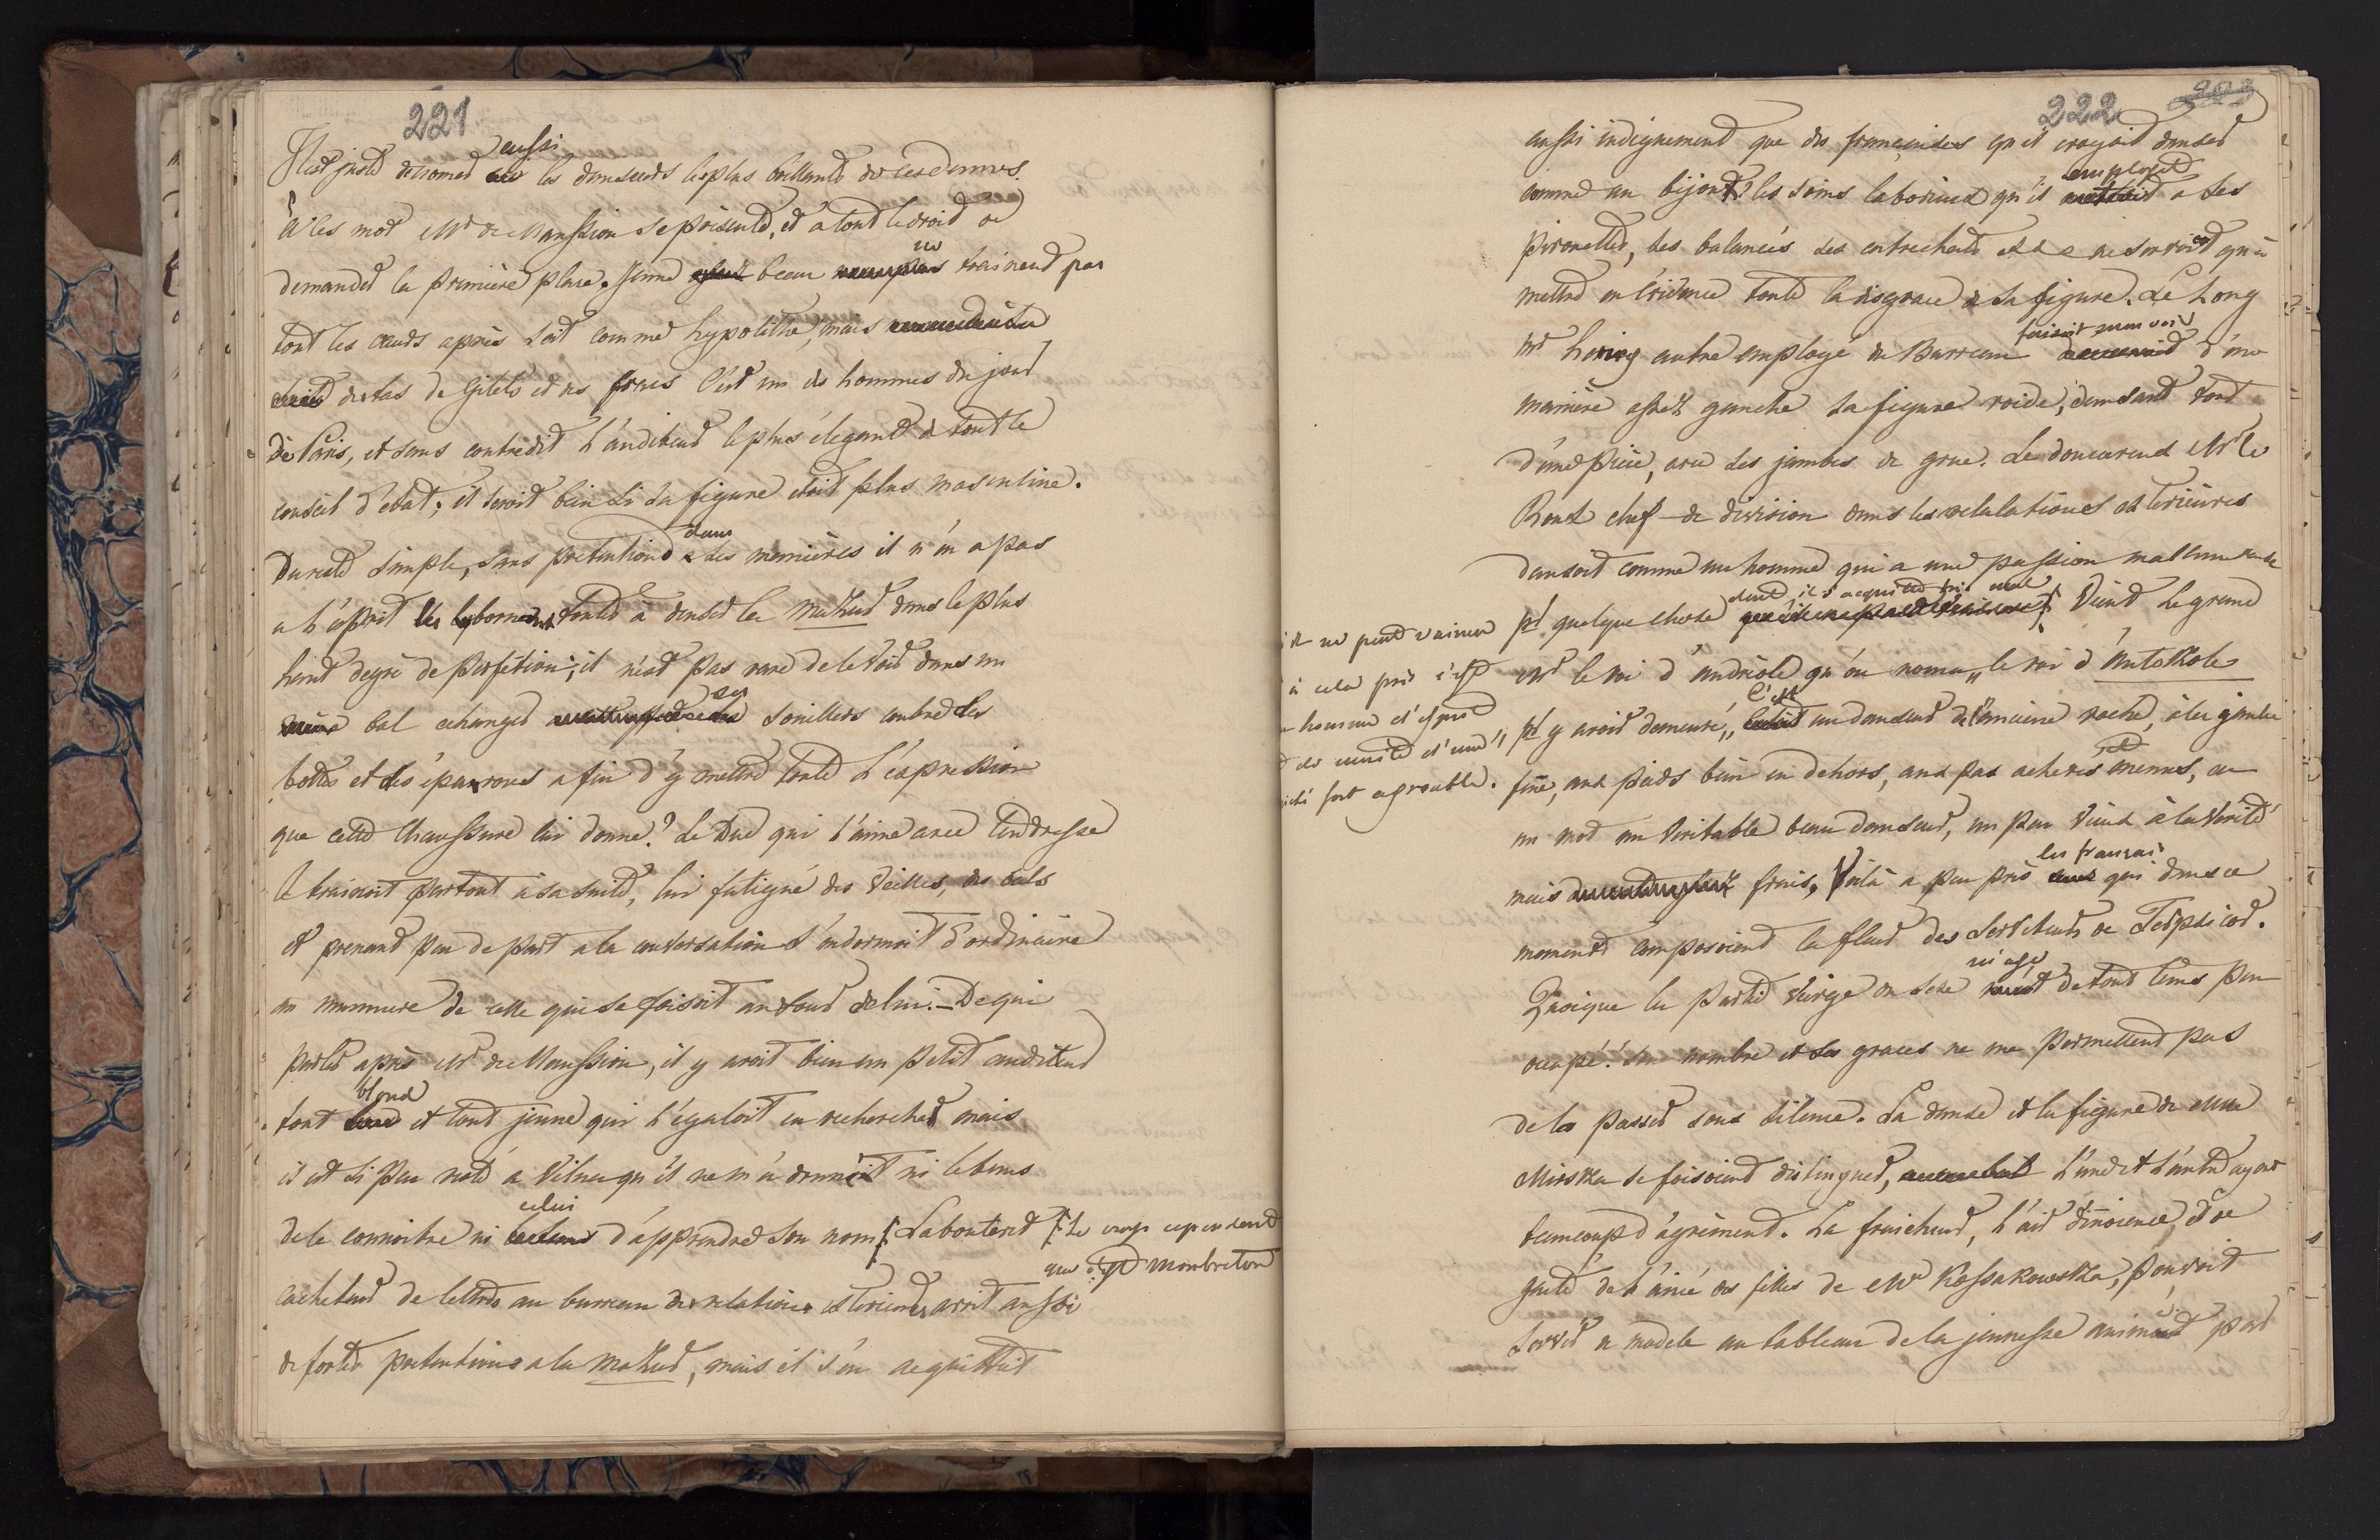 221
aussi
Il est juste de nomer les danseurs les plus brillants de ces dames.
A ces mot Mr de Maussion se présente, et a tout le droit de
demander la premiere place. Jeune beau ne trainant pas
tout les cœurs après soit comme hypolithe, mais
des tas de gilets et des fracs c'est un des hommes du jour
de Paris, et sans contredit l'auditeur le plus élégant de tout le
conseil d'etat; il seroit bien si sa figure etoit plus masculine.
Du reste simple, sans pretentions dans ses manières il n'en a pas
a l'esprit les borne toutes à danser la Mazur dans le plus
haut degré de perfétion; il n'est pas rare de le voir dans un
bal echanger ses souillers contre des
bottes et des éperons afin d'y mettre toute l'expression
que cette chaussure lui donne? Le Duc qui l'aime avec tendresse
le trainoit partout à sa suite, lui fatigué des veilles, des bals
et prenant peu de part a la conversation s'endormoit d'ordinaire
au murmure de celle qui se faisoit autour de lui. – De qui
parler après Mr de Maussion, il y avoit bien un petit auditeur
blond
tout et tout jeune qui l'égaloit en recherches mais
il est si peu resté a Vilna qu'il ne m'a donné ni le tems
celui
de le connoitre ni d'apprendre son nom (: Labonterd (: Je crois cependant
que c'est Monbreton
cacheteur de lettres au bureau des relations exterieures avoit aussi
de fortes pretentions a la Mazur, mais il s'en acquittoit
222
203
aussi indignement que des françaises qu'il croyoit danser
employoit
comme un bijou les soins laborieux qu'il à ses
pirouettes, ses balancés ses entrechats ne servoit qu'à
mettre en évidence toute la disgrace de sa figure. Le long
faisoit mouvoir
Mr hering autre employé du Bureau d'une
manière assez gauche sa figure roide, dansant tout
d'une pièce, avec des jambes de grue. Le doucereux Mr le
Roux chef de division dans les relalations exterieures
dansoit comme un homme qui a une passion malheureuse
dont il s'acquitte fort mal
pr quelque chose Vient le grand
il ne peut vaincre
à cela près c'est
homme d'esprit
de mérite et d'une
société fort agréable.
Mr le roi d'andréole qu'on noma „le roi d'Antokole
c'est
pr y avoir demeuré,, un danseur de l'ancienne roche, à la jambe
fine, aux pieds bien en dehors, aux pas achevés menus, en
un mot un véritable beau danseur, un peu vieux à la vérité
les français
mais frais. Voilà a peu près qui dans ce
moment composoient la fleur des serviteurs de Terpsicor.
Quoique la partie vierge du sexe m'aye de tout tems peu
ocupé! son nombre et ses graces ne me permettent pas
de la passer sous silence. La danse et la figure de Mlle
Mirska se faisoient distinguer, l'une et l'autre ayant
beaucoup d'agrément. La fraicheur, l'air d'innocence, et de
gaité de l'ainé des filles de Mr Kossakowska, pouvoit
servir de modele au tableau de la jeunesse animé par